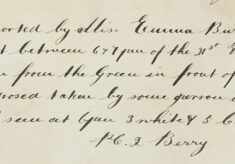 orted by Mrs. Emma Bur
t between 6 & 7 pm of the 31st
from the Green in front of
posed taken by some person
seen at 6 pm 3 white & 5
P.C. 2 Berry